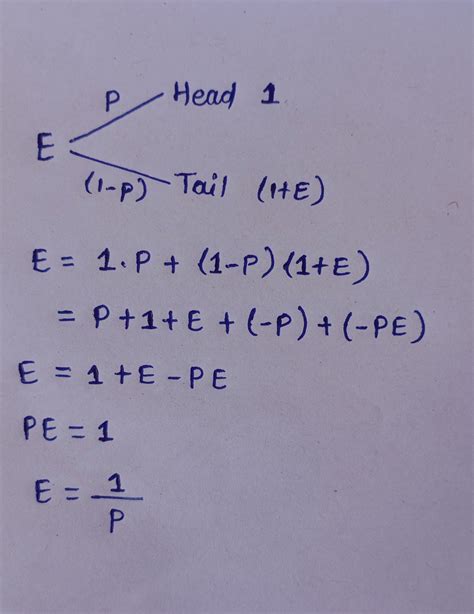 P Head 1
E
(1-P) Tail (1+E)
E = 1.P + (1-P)(1+E)
= P+1+E + (-P) + (-PE)
E = 1 + E - PE
PE = 1
E = 1/P